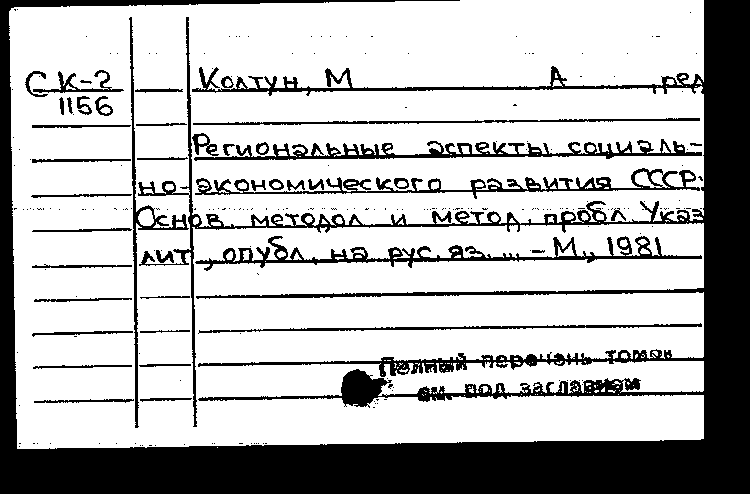 С К-2 Колтун, М А , ред
1156
Региональные аспекты социаль-
но-экономического развития СССР:
Основ. методол и метод. пробл. Указ
лит., опубл. на рус. яз. ... – М., 1981
Полный перечень томов
см. под заглавием